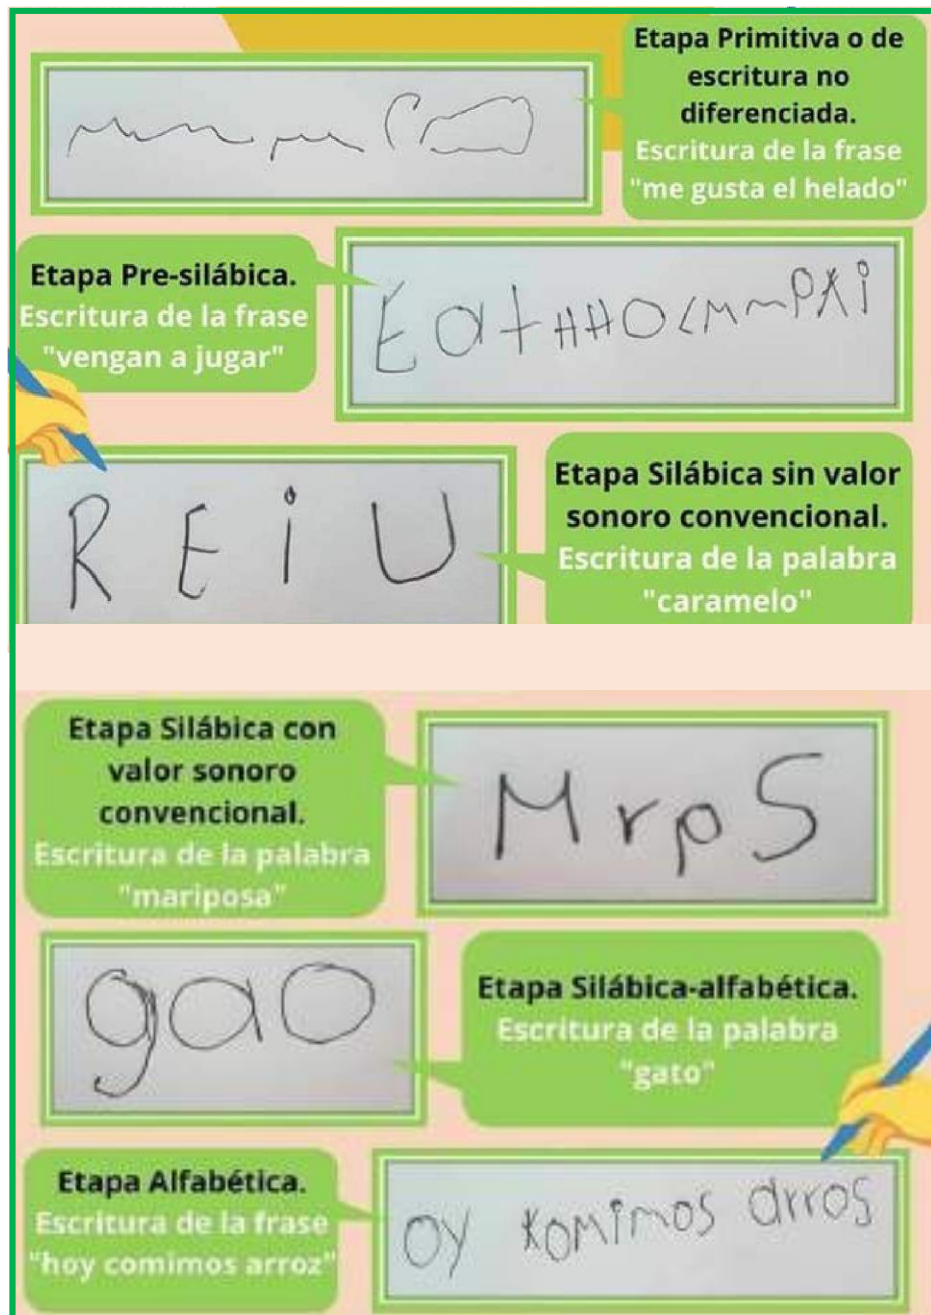 Etapa Primitiva o de
escritura no
diferenciada.
Escritura de la frase
"me gusta el helado"
Etapa Pre-silábica.
Escritura de la frase
"vengan a jugar"
EatHHO<MmPAi
Etapa Silábica sin valor
sonoro convencional.
Escritura de la palabra
"caramelo"
R E i U
Etapa Silábica con
valor sonoro
convencional.
Escritura de la palabra
"mariposa"
MrpS
gao
Etapa Silábica-alfabética.
Escritura de la palabra
"gato"
Etapa Alfabética.
Escritura de la frase
"hoy comimos arroz"
oy komimos arros